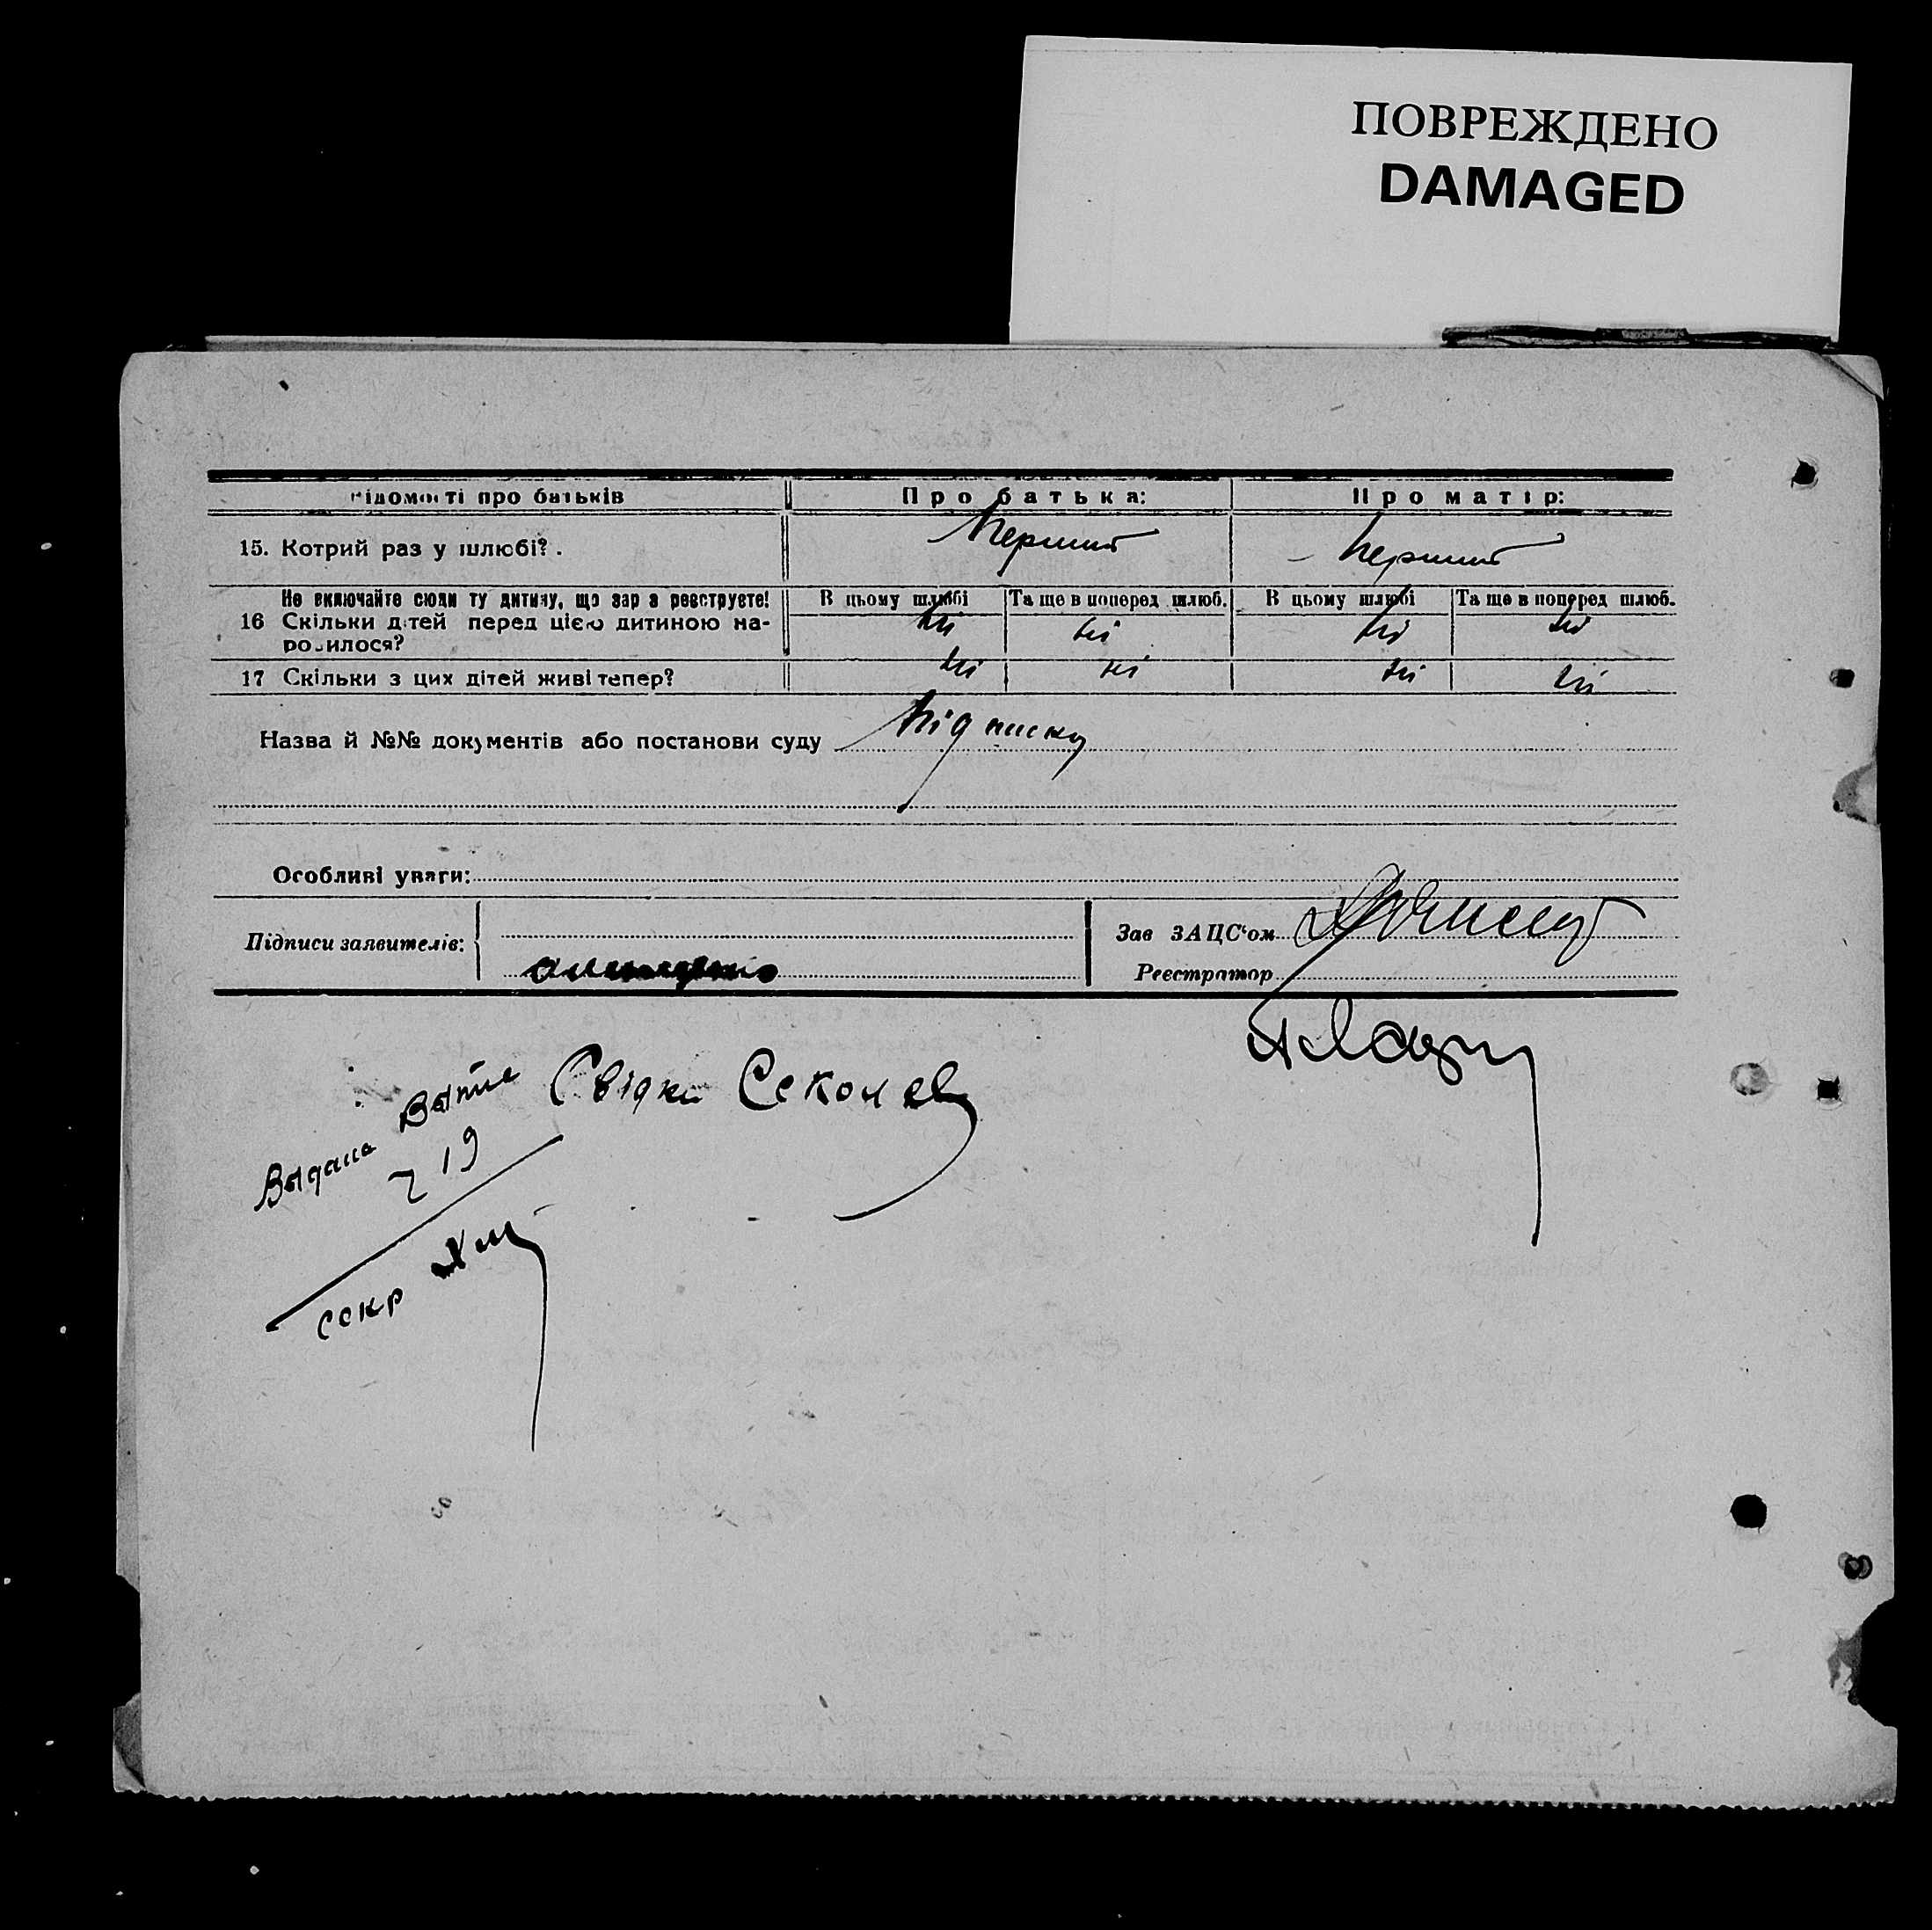 ПОВРЕЖДЕНО
DAMAGED
Відомості про батьків Про батька: Про матір:
15. Котрий раз у шлюбі? . Перший Перший
Не включайте сюди ту дитину, що зараз реєструєте! В цьому шлюбі Та ще в поперед шлюб. В цьому шлюбі Та ще в поперед шлюб.
16 Скільки дітей перед цією дитиною на- ні ні ні ні
родилося?
17 Скільки з цих дітей живі тепер? ні ні ні ні
Назва й №№ документів або постанови суду Підписку
Особливі уваги:
Підписи заявителів:
Зав ЗАЦС'ом
Реєстратор
Свідки
Выдана
219
секр